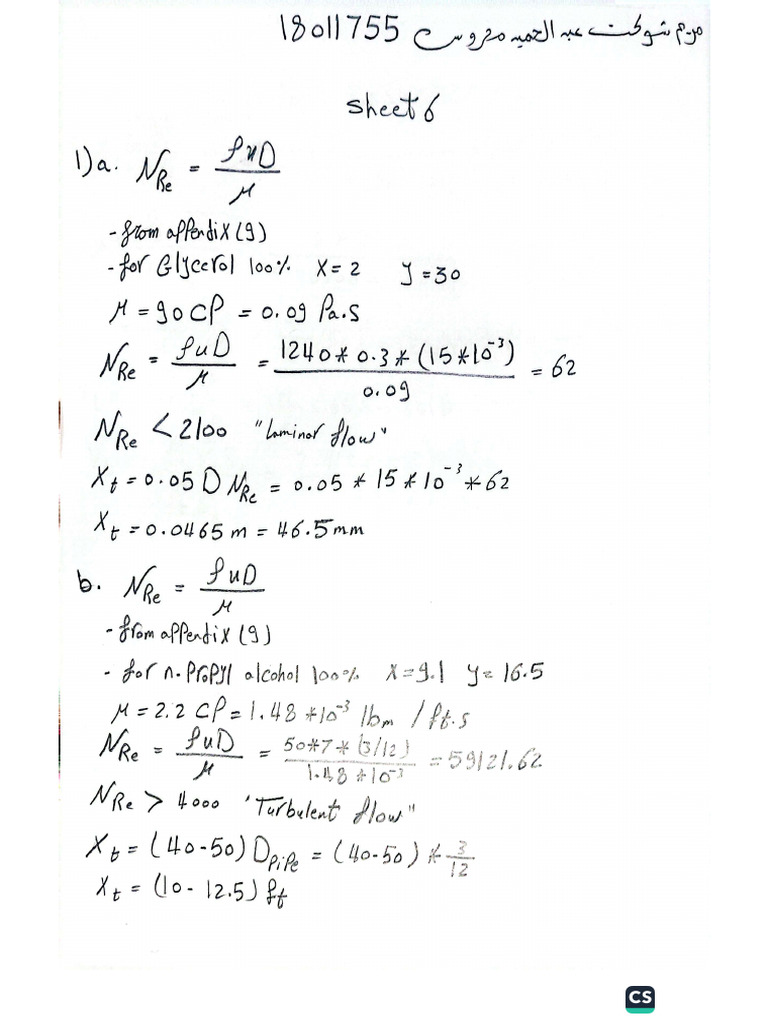 18011755 مريم شوكت عبد الحميد محروس
Sheet 6
1) a. N_Re = ρuD / μ
- from appendix (9)
- for Glycerol 100% X = 2 Y = 30
μ = 90 CP = 0.09 Pa.s
N_Re = ρuD / μ = 1240 * 0.3 * (15*10^-3) / 0.09 = 62
N_Re < 2100 "Laminar flow"
X_t = 0.05 D N_Re = 0.05 * 15 * 10^-3 * 62
X_t = 0.0465 m = 46.5 mm
b. N_Re = ρuD / μ
- from appendix (9)
- for n-Propyl alcohol 100% X = 9.1 Y = 16.5
μ = 2.2 CP = 1.48 * 10^-3 lbm / ft.s
N_Re = ρuD / μ = 50*7*(3/12) / 1.48 * 10^-3 = 59121.62
N_Re > 4000 "Turbulent flow"
X_t = (40-50) D_Pipe = (40-50) * 3/12
X_t = (10 - 12.5) ft
CS